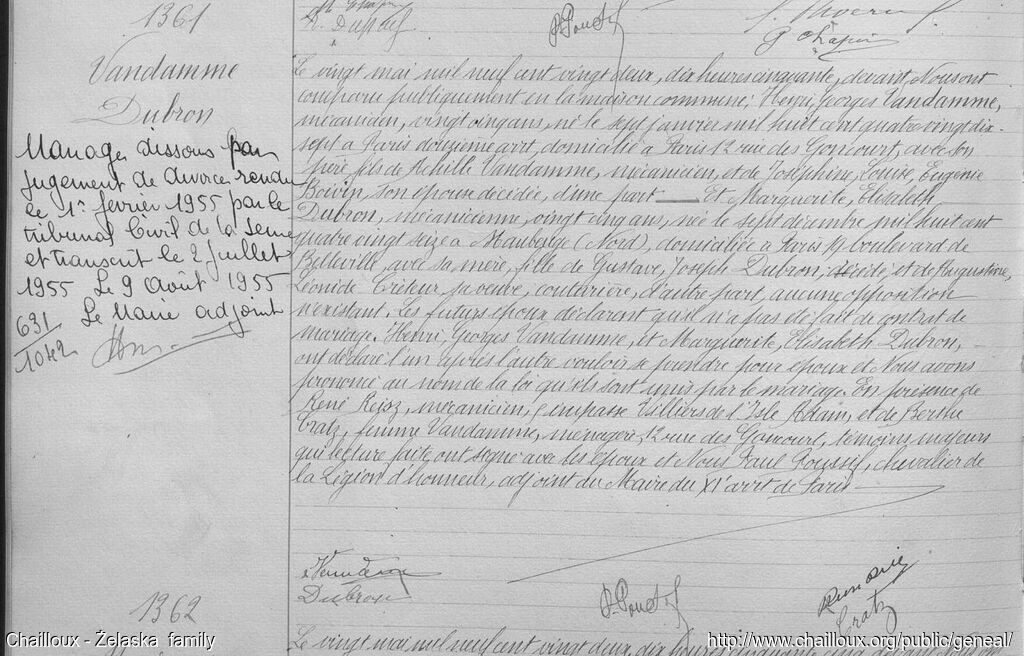 1361
Vandamme
Dubron
Mariage dissous par
jugement de divorce rendu
le 1er février 1955 par le
tribunal Civil de la Seine
et transcrit le 2 juillet
1955 Le 9 Août 1955
Le Maire adjoint
631
1042
G Chapin
Le vingt mai mil neuf cent vingt deux, dix heures cinquante, devant Nous ont
comparu publiquement en la maison commune: Henri, Georges Vandamme,
mécanicien, vingt cinq ans, né le sept janvier mil huit cent quatre vingt dix-
sept à Paris douzième arrt, domicilié à Paris 12 rue des Goncourt, avec son
père, fils de Achille Vandamme, mécanicien, et de Joséphine, Louise, Eugénie
Boivin, son épouse décédée, d'une part — Et Marguerite, Elisabeth
Dubron, mécanicienne, vingt cinq ans, née le sept décembre mil huit cent
quatre vingt seize à Maubeuge (Nord), domiciliée à Paris boulevard de
Belleville, avec sa mère, fille de Gustave, Joseph Dubron, décédé et de Augustine,
Léonide sa veuve, couturière, d'autre part, aucune opposition
n'existant. Les futurs époux déclarent qu'il n'a pas été fait de contrat de
mariage. Henri, Georges Vandamme, et Marguerite, Elisabeth Dubron, -
ont déclaré l'un après l'autre vouloir se prendre pour époux et Nous avons
prononcé au nom de la loi qu'ils sont unis par le mariage. En présence de
René mécanicien, impasse Villiers de l'Isle Adam, et de Berthe
Cratz, femme Vandamme, ménagère, 12 rue des Goncourt, témoins majeurs
qui lecture faite ont signé avec les époux et Nous Paul chevalier de
la Légion d'honneur, adjoint du Maire du XIe arrt de Paris —
Vandamme
Dubron
Cratz
1362
Le vingt mai mil neuf cent vingt deux, dix heures cinquante
Chailloux - Żelaska family
http://www.chailloux.org/public/geneal/